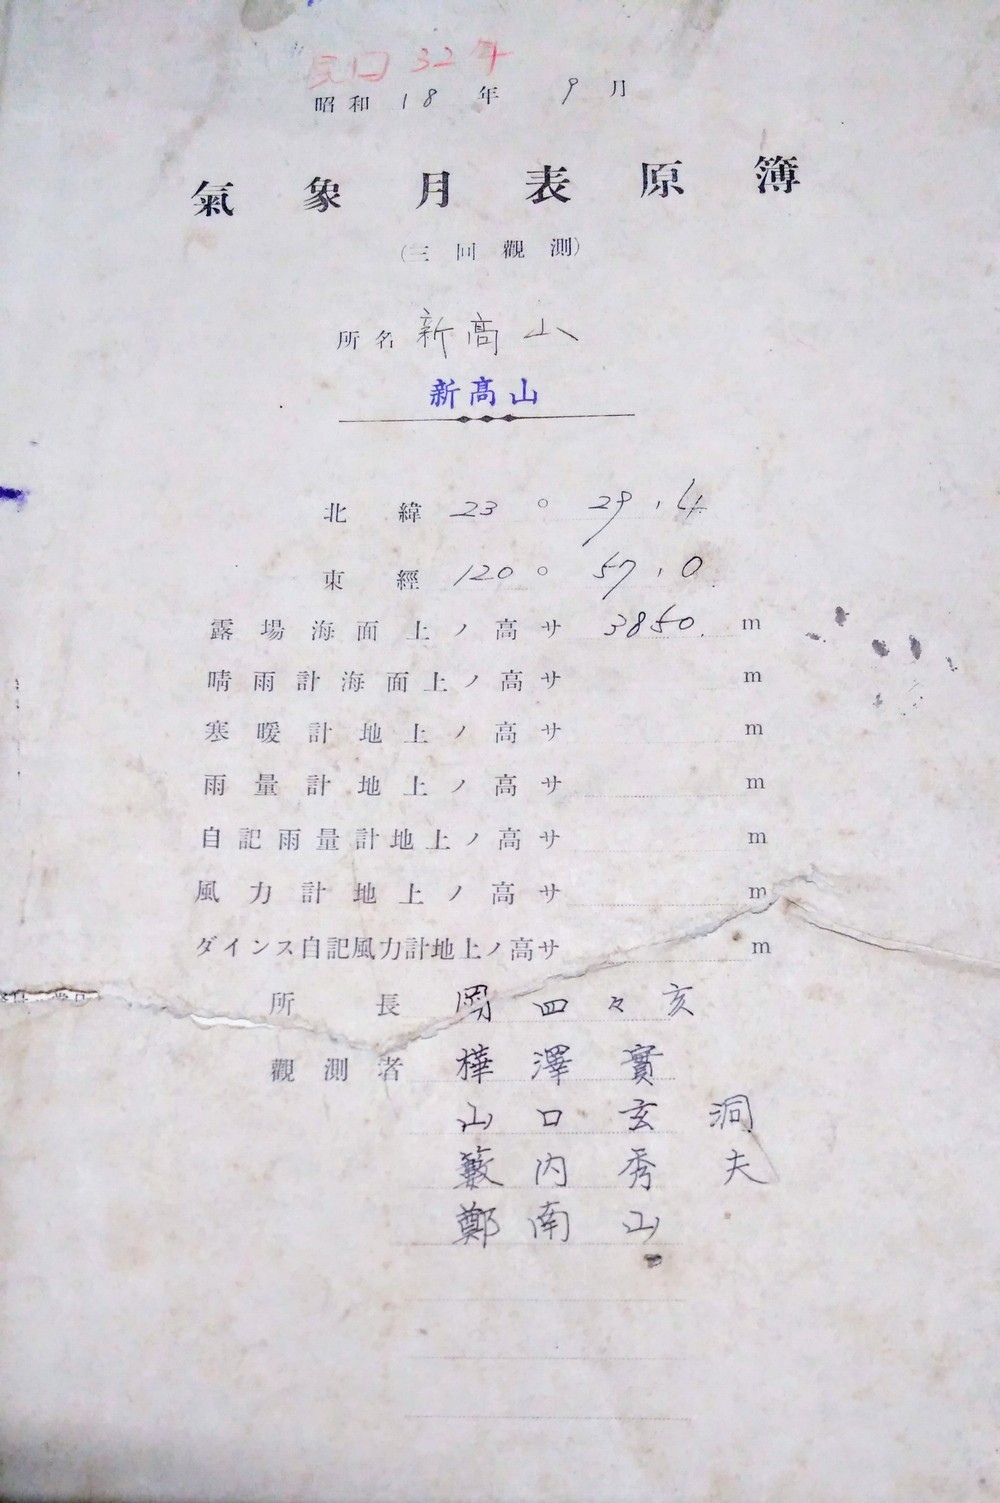 民口 32年
昭和 18 年 9 月
氣象月表原簿
(三回觀測)
所名 新高山
新高山
北緯 23° 29.4
東經 120° 57.0
露場海面上ノ高サ 3850. m
晴雨計海面上ノ高サ m
寒暖計地上ノ高サ m
雨量計地上ノ高サ m
自記雨量計地上ノ高サ m
風力計地上ノ高サ m
ダインス自記風力計地上ノ高サ m
所長 岡四々亥
觀測者 樺澤實
山口玄洞
籔内秀夫
鄭南山